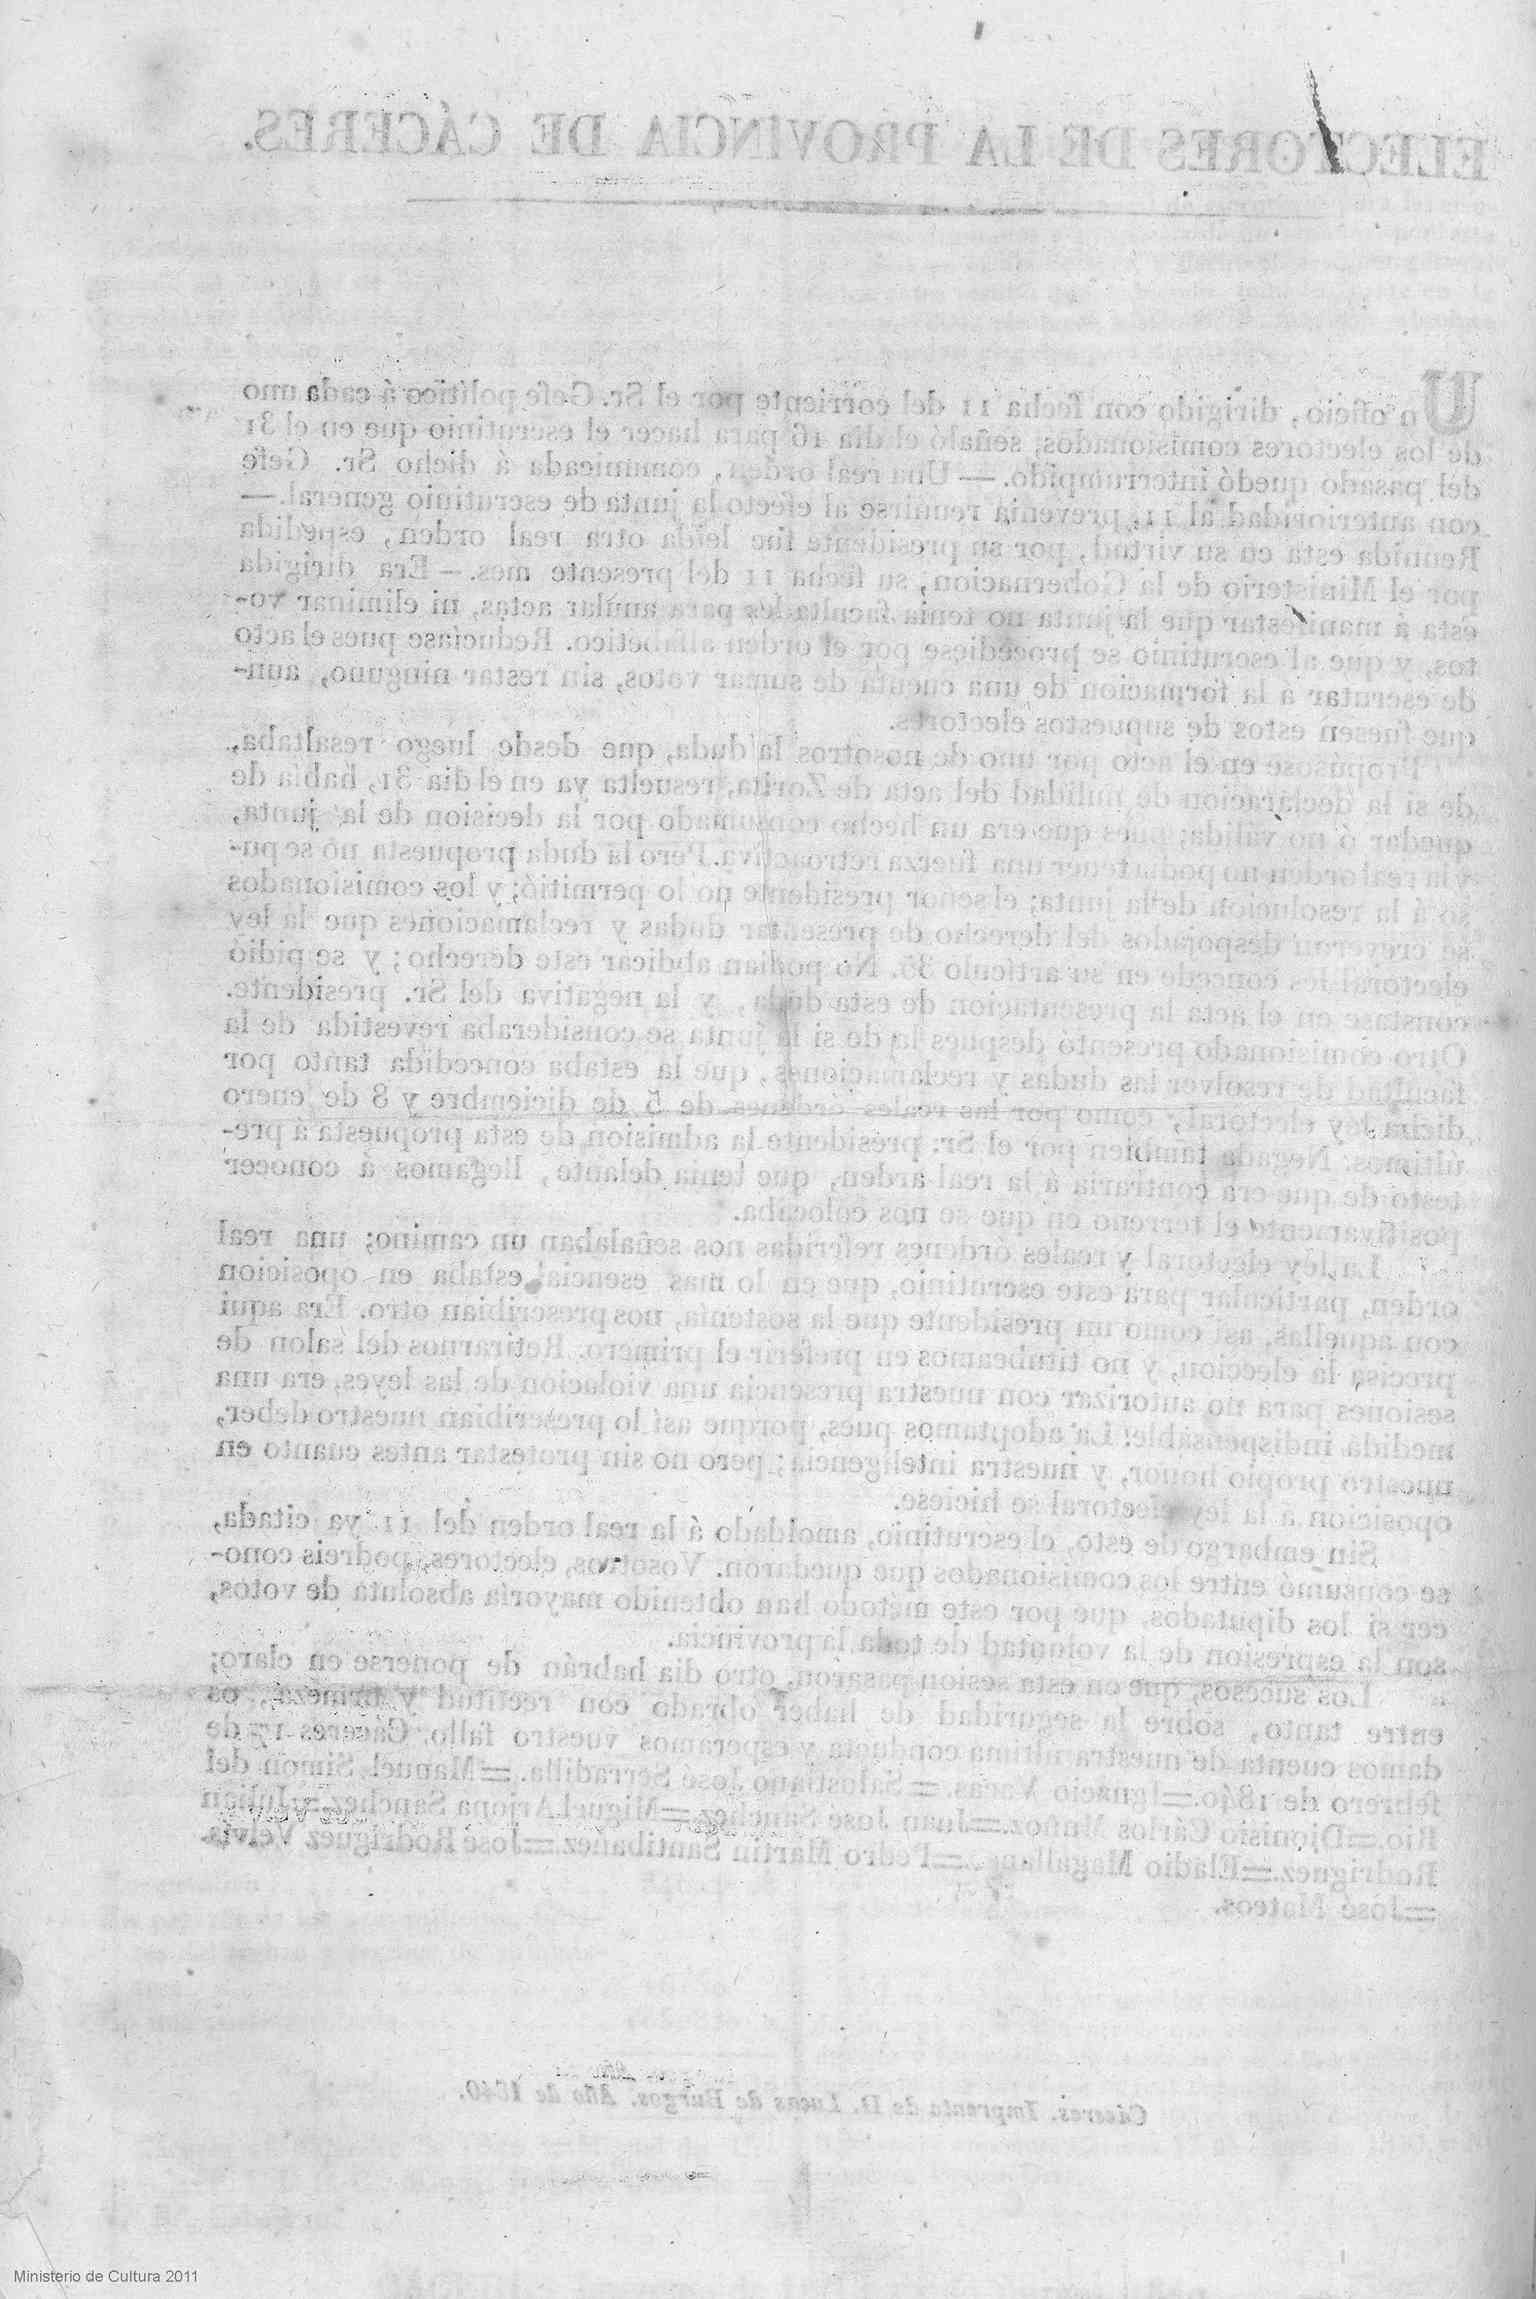 ELECTORES DE LA PROVINCIA DE CÁCERES.
Un oficio, dirigido con fecha 11 del corriente por el Sr. Gefe político á cada uno
de los electores comisionados, señaló el dia 16 para hacer el escrutinio que en el 31
del pasado quedó interrumpido.— Una real orden, comunicada á dicho Sr. Gefe
con anterioridad al 11, prevenia reunirse al efecto la junta de escrutinio general.—
Reunida esta en su virtud, por su presidente fue leida otra real orden, espedida
por el Ministerio de la Gobernacion, su fecha 11 del presente mes.—Era dirigida
esta á manifestar que la junta no tenia facultades para anular actas, ni eliminar vo-
tos, y que al escrutinio se procediese por el orden alfabético. Reducíase pues el acto
de escrutar á la formacion de una cuenta de sumar votos, sin restar ninguno, aun-
que fuesen estos de supuestos electores.
Propúsose en el acto por uno de nosotros la duda, que desde luego resaltaba,
de si la declaracion de nulidad del acta de Zorita, resuelta ya en el dia 31, había de
quedar ó no válida; pues que era un hecho consumado por la decision de la junta,
y la real orden no podia tener una fuerza retroactiva. Pero la duda propuesta no se pu-
so á la resolucion de la junta; el señor presidente no lo permitió; y los comisionados
se creyeron despojados del derecho de presentar dudas y reclamaciones que la ley
electoral les concede en su artículo 35. No podian abdicar este derecho; y se pidió
constase en el acta la presentacion de esta duda, y la negativa del Sr. presidente.
Otro comisionado presentó despues la de si la junta se consideraba revestida de la
facultad de resolver las dudas y reclamaciones, que la estaba concedida tanto por
dicha ley electoral, como por las reales órdenes de 5 de diciembre y 8 de enero
últimos. Negada tambien por el Sr. presidente la admision de esta propuesta á pre-
testo de que era contraria á la real orden, que tenia delante, llegamos á conocer
positivamente el terreno en que se nos colocaba.
La ley electoral y reales órdenes referidas nos señalaban un camino; una real
orden, particular para este escrutinio, que en lo mas esencial estaba en oposicion
con aquellas, asi como un presidente que la sostenía, nos prescribian otro. Era aqui
precisa la eleccion, y no titubeamos en preferir el primero. Retirarnos del salon de
sesiones para no autorizar con nuestra presencia una violacion de las leyes, era una
medida indispensable: La adoptamos pues, porque asi lo prescribian nuestro deber,
nuestro propio honor, y nuestra inteligencia; pero no sin protestar antes cuanto en
oposicion á la ley electoral se hiciese.
Sin embargo de esto, el escrutinio, amoldado á la real orden del 11 ya citada,
se consumó entre los comisionados que quedaron. Vosotros, electores, podreis cono-
cer si los diputados, que por este método han obtenido mayoría absoluta de votos,
son la espresion de la voluntad de toda la provincia.
Los sucesos, que en esta sesion pasaron, otro dia habrán de ponerse en claro;
entre tanto, sobre la seguridad de haber obrado con rectitud y firmeza, os
damos cuenta de nuestra ultima conducta y esperamos vuestro fallo. Cáceres 17 de
febrero de 1840.=Ignacio Vacas.=Salustiano José Serradilla.=Manuel Simon del
Rio.=Dionisio Cárlos Muñoz.=Juan José Sanchez.=Miguel Arjona Sanchez.=Julian
Rodriguez.=Eladio Magallanes.=Pedro Martin Santibañez.=José Rodriguez Velvis.
=José Mateos.
Cáceres. Imprenta de D. Lucas de Burgos. Año de 1840.
Ministerio de Cultura 2011